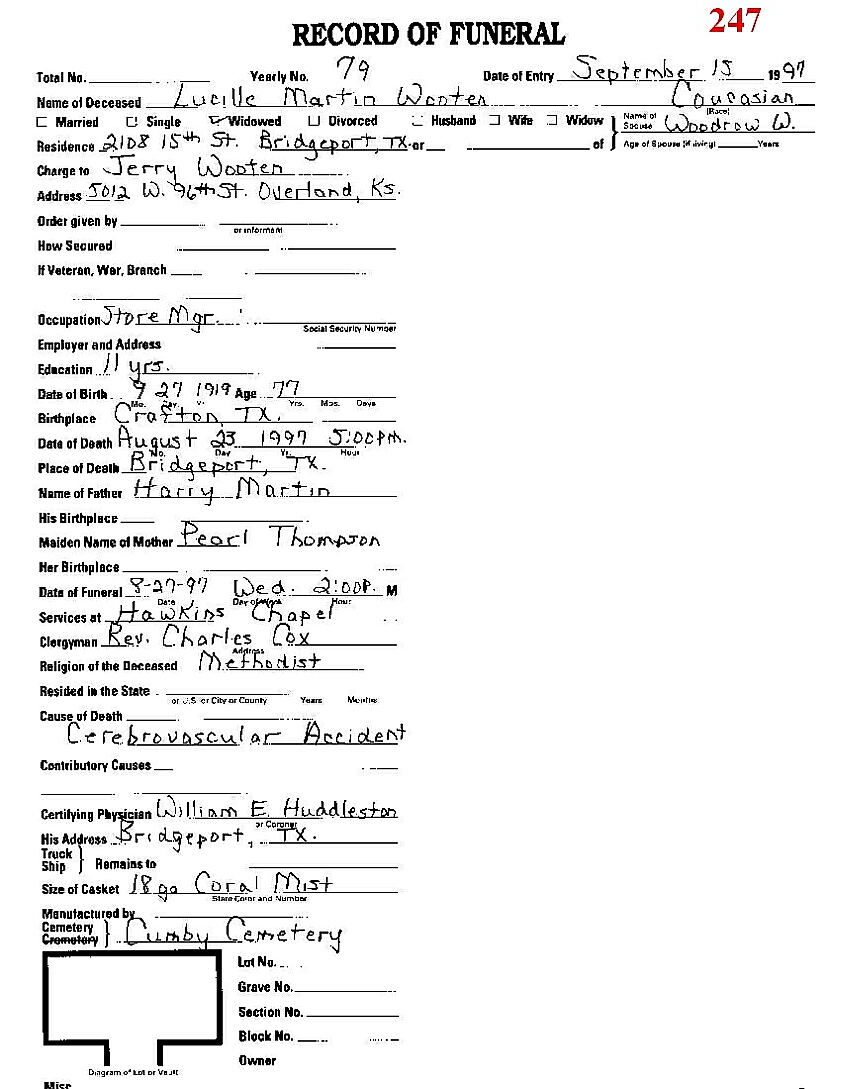 247
RECORD OF FUNERAL
Total No. Yearly No. 79 Date of Entry September 15 1997
Name of Deceased Lucille Martin Wooten Caucasian
(Race)
Married Single Widowed Divorced Husband Wife Widow } Name of Spouse Woodrow W.
Residence 2108 15th St. Bridgeport, TX. or of Age of Spouse (if living) Years
Charge to Jerry Wooten
Address 5012 W. 96th St. Overland, Ks.
Order given by
or informant
How Secured
If Veteran, War, Branch
Occupation Store Mgr.
Social Security Number
Employer and Address
Education 11 yrs.
Date of Birth 9 27 1919 Age 77
Mo. Day Yr. Yrs. Mos. Days
Birthplace Crafton, TX.
Date of Death August 23 1997 5:00 P.M.
Mo. Day Yr. Hour
Place of Death Bridgeport, TX.
Name of Father Harry Martin
His Birthplace
Maiden Name of Mother Pearl Thompson
Her Birthplace
Date of Funeral 8-27-97 Wed. 2:00 P. M
Date Day of Week Hour
Services at Hawkins Chapel
Clergyman Rev. Charles Cox
Address
Religion of the Deceased Methodist
Resided in the State
or U.S. or City or County Years Months
Cause of Death
Cerebrovascular Accident
Contributory Causes
Certifying Physician William E. Huddleston
or Coroner
His Address Bridgeport, TX.
Truck
Ship } Remains to
Size of Casket 18 ga Coral Mist
State Color and Number
Manufactured by
Cemetery
Crematory } Cumby Cemetery
Lot No.
Grave No.
Section No.
Block No.
Owner
Diagram of Lot or Vault
Misc.